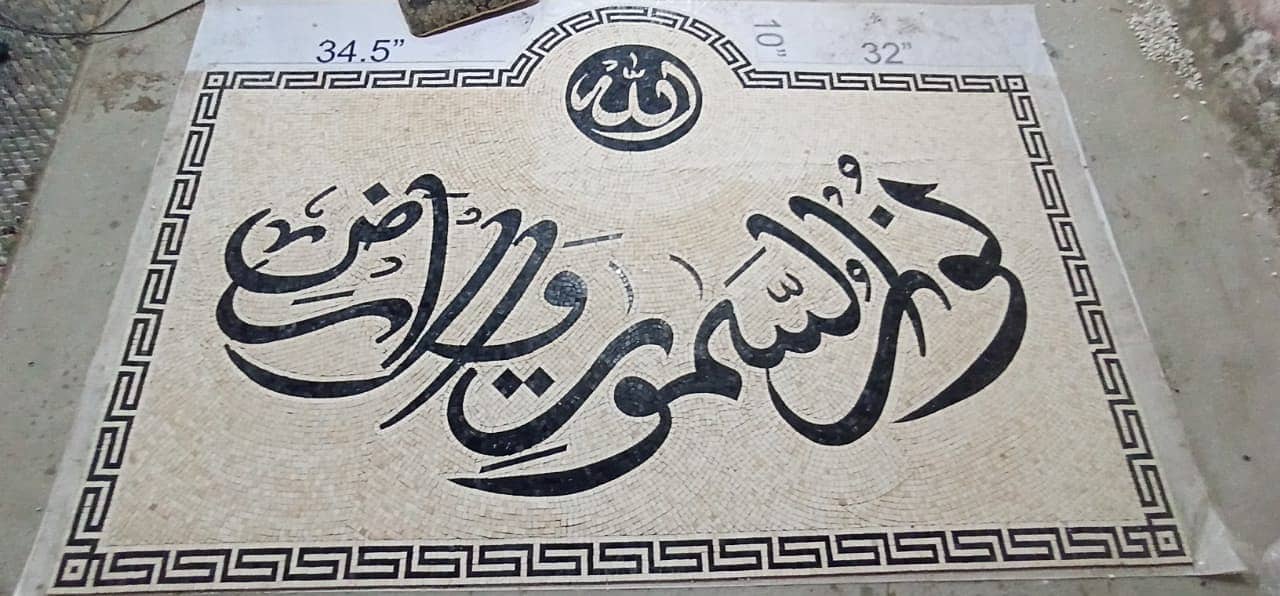 34.5”
10”
32”
الله
نُورُ السَّمٰوٰتِ وَالْاَرْضِ